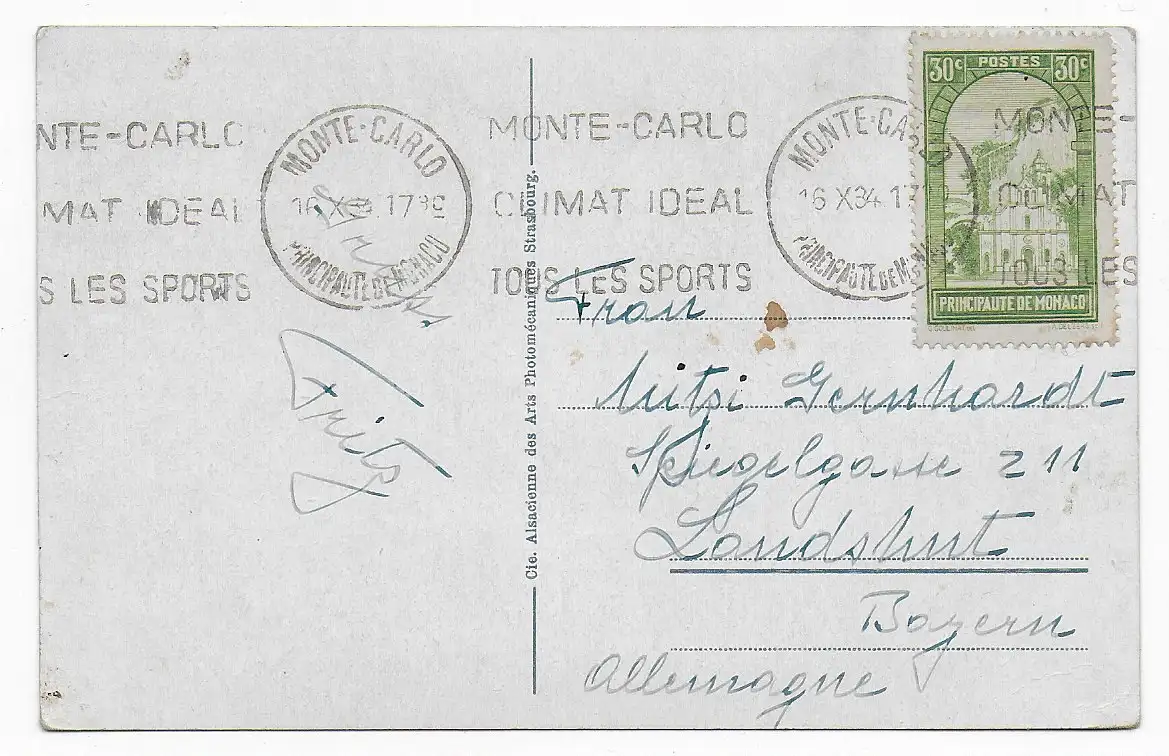 NTE-CARLO
MAT IDEAL
S LES SPORTS
MONTE-CARLO
16 X 17
PRINCIPAUTE DE MONACO
MONTE-CARLO
CLIMAT IDEAL
TOUS LES SPORTS
MONTE-CARLO
16 X34 17
PRINCIPAUTE DE MONACO
MONTE-
CLIMAT
TOUS LES
30c POSTES 30c
PRINCIPAUTE DE MONACO
Gruss
Fritz
Cie. Alsacienne des Arts Photomécaniques Strasbourg.
Frau
Mitzi Gernhardt
Spiegelgasse 211
Landshut
Bayern
Allemagne